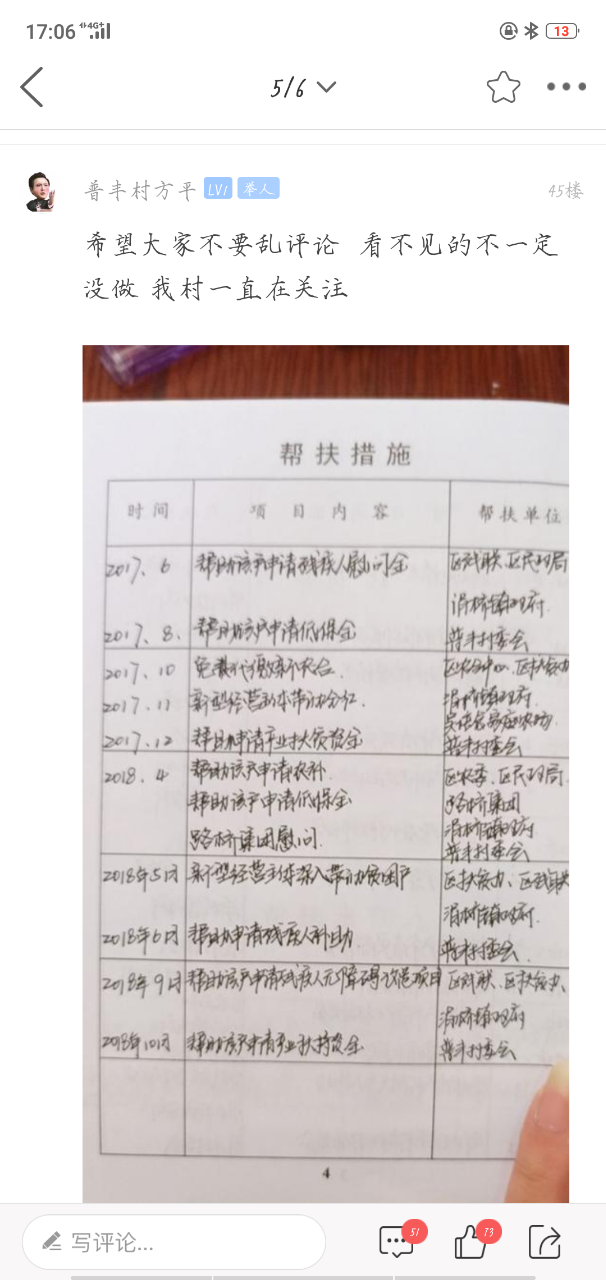 17:06 4G+ 13
5/6
普丰村方平 LV1 举人 45楼
希望大家不要乱评论 看不见的不一定
没做 我村一直在关注
帮扶措施
时间 项目内容 帮扶单位
2017、6 帮助该户申请残疾人慰问金 区残联、区民政局
涓桥镇政府
2017、8、 帮助该户申请低保金 普丰村委会
2017、10 免费代缴新农合 区扶贫办
2017、11 新型经营主体带动分红、 涓桥镇政府、
2017、12 帮助申请产业扶贫资金 普丰村委会
2018、4 帮助该户申请农补 区农委、区民政局、
帮助该户申请低保金 路桥集团
涓桥镇政府
路桥集团慰问 普丰村委会
2018年5月 新型经营主体深入带动贫困户 区扶贫办、区残联
涓桥镇政府、
2018年6月 帮助申请残疾人补助 普丰村委会、
2018年9月 帮助该户申请残疾人无障碍改造项目 区残联、区扶贫办、
涓桥镇政府
2018年10月 帮助该户申请产业扶持资金 普丰村委会
4
写评论... 51 73